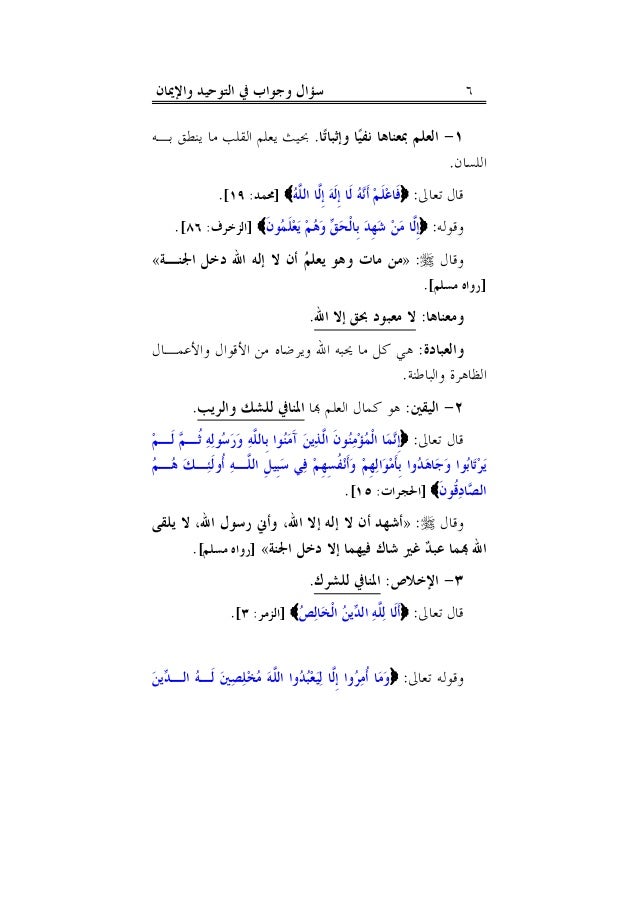 ٦ سؤال وجواب في التوحيد والإيمان
١– العلم بمعناها نفيًا وإثباتًا. بحيث يعلم القلب ما ينطق بـــه
اللسان.
قال تعالى: ﴿فَاعْلَمْ أَنَّهُ لَا إِلَهَ إِلَّا اللَّهُ﴾ [محمد: ١٩].
وقوله: ﴿إِلَّا مَنْ شَهِدَ بِالْحَقِّ وَهُمْ يَعْلَمُونَ﴾ [الزخرف: ٨٦].
وقال ﷺ: «من مات وهو يعلمُ أن لا إله الله دخل الجنـــة»
[رواه مسلم].
ومعناها: لا معبود بحق إلا الله.
والعبادة: هي كل ما يحبه الله ويرضاه من الأقوال والأعمـــال
الظاهرة والباطنة.
٢– اليقين: هو كمال العلم بها المنافي للشك والريب.
قال تعالى: ﴿إِنَّمَا الْمُؤْمِنُونَ الَّذِينَ آَمَنُوا بِاللَّهِ وَرَسُولِهِ ثُـــمَّ لَـــمْ
يَرْتَابُوا وَجَاهَدُوا بِأَمْوَالِهِمْ وَأَنْفُسِهِمْ فِي سَبِيلِ اللَّـــهِ أُولَئِـــكَ هُـــمُ
الصَّادِقُونَ﴾ [الحجرات: ١٥].
وقال ﷺ: «أشهد أن لا إله إلا الله، وأني رسول الله، لا يلقى
الله بهما عبدٌ غير شاك فيهما إلا دخل الجنة» [رواه مسلم].
٣– الإخلاص: المنافي للشرك.
قال تعالى: ﴿أَلَا لِلَّهِ الدِّينُ الْخَالِصُ﴾ [الزمر: ٣].
وقوله تعالى: ﴿وَمَا أُمِرُوا إِلَّا لِيَعْبُدُوا اللَّهَ مُخْلِصِينَ لَـــهُ الـــدِّينَ